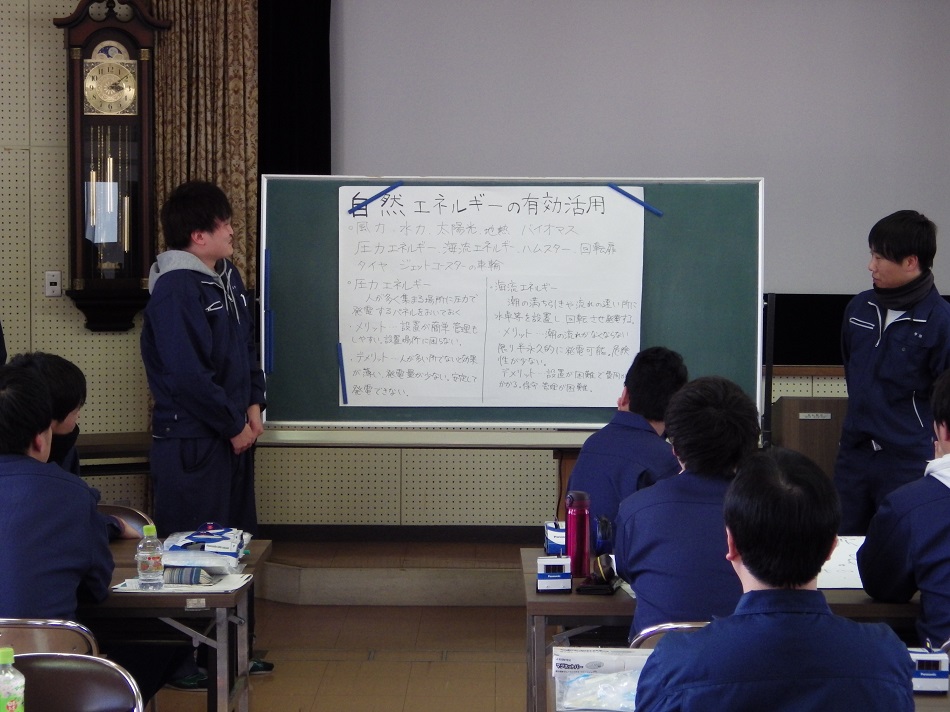 自然エネルギーの有効活用
・風力 水力 太陽光 地熱 バイオマス
圧力エネルギー 海流エネルギー ハムスター 回転扉
タイヤ ジェットコースターの車輪
・圧力エネルギー
人が多く集まる場所に圧力で
発電するパネルをおいておく
・メリット…設置が簡単 管理も
しやすい。設置場所に困らない。
・デメリット…人が多い所でないと効果
が薄い。発電量が少ない。
発電できない。
・海流エネルギー
潮の満ち引きや流れの速い所に
水車等を設置し 回転させ発電する。
メリット…潮の流れがなくならない
限り半永久的に発電可能。危険
性が少ない。
デメリット…設置が困難で費用が
かかる。保守 管理が困難。
Panasonic
Panasonic